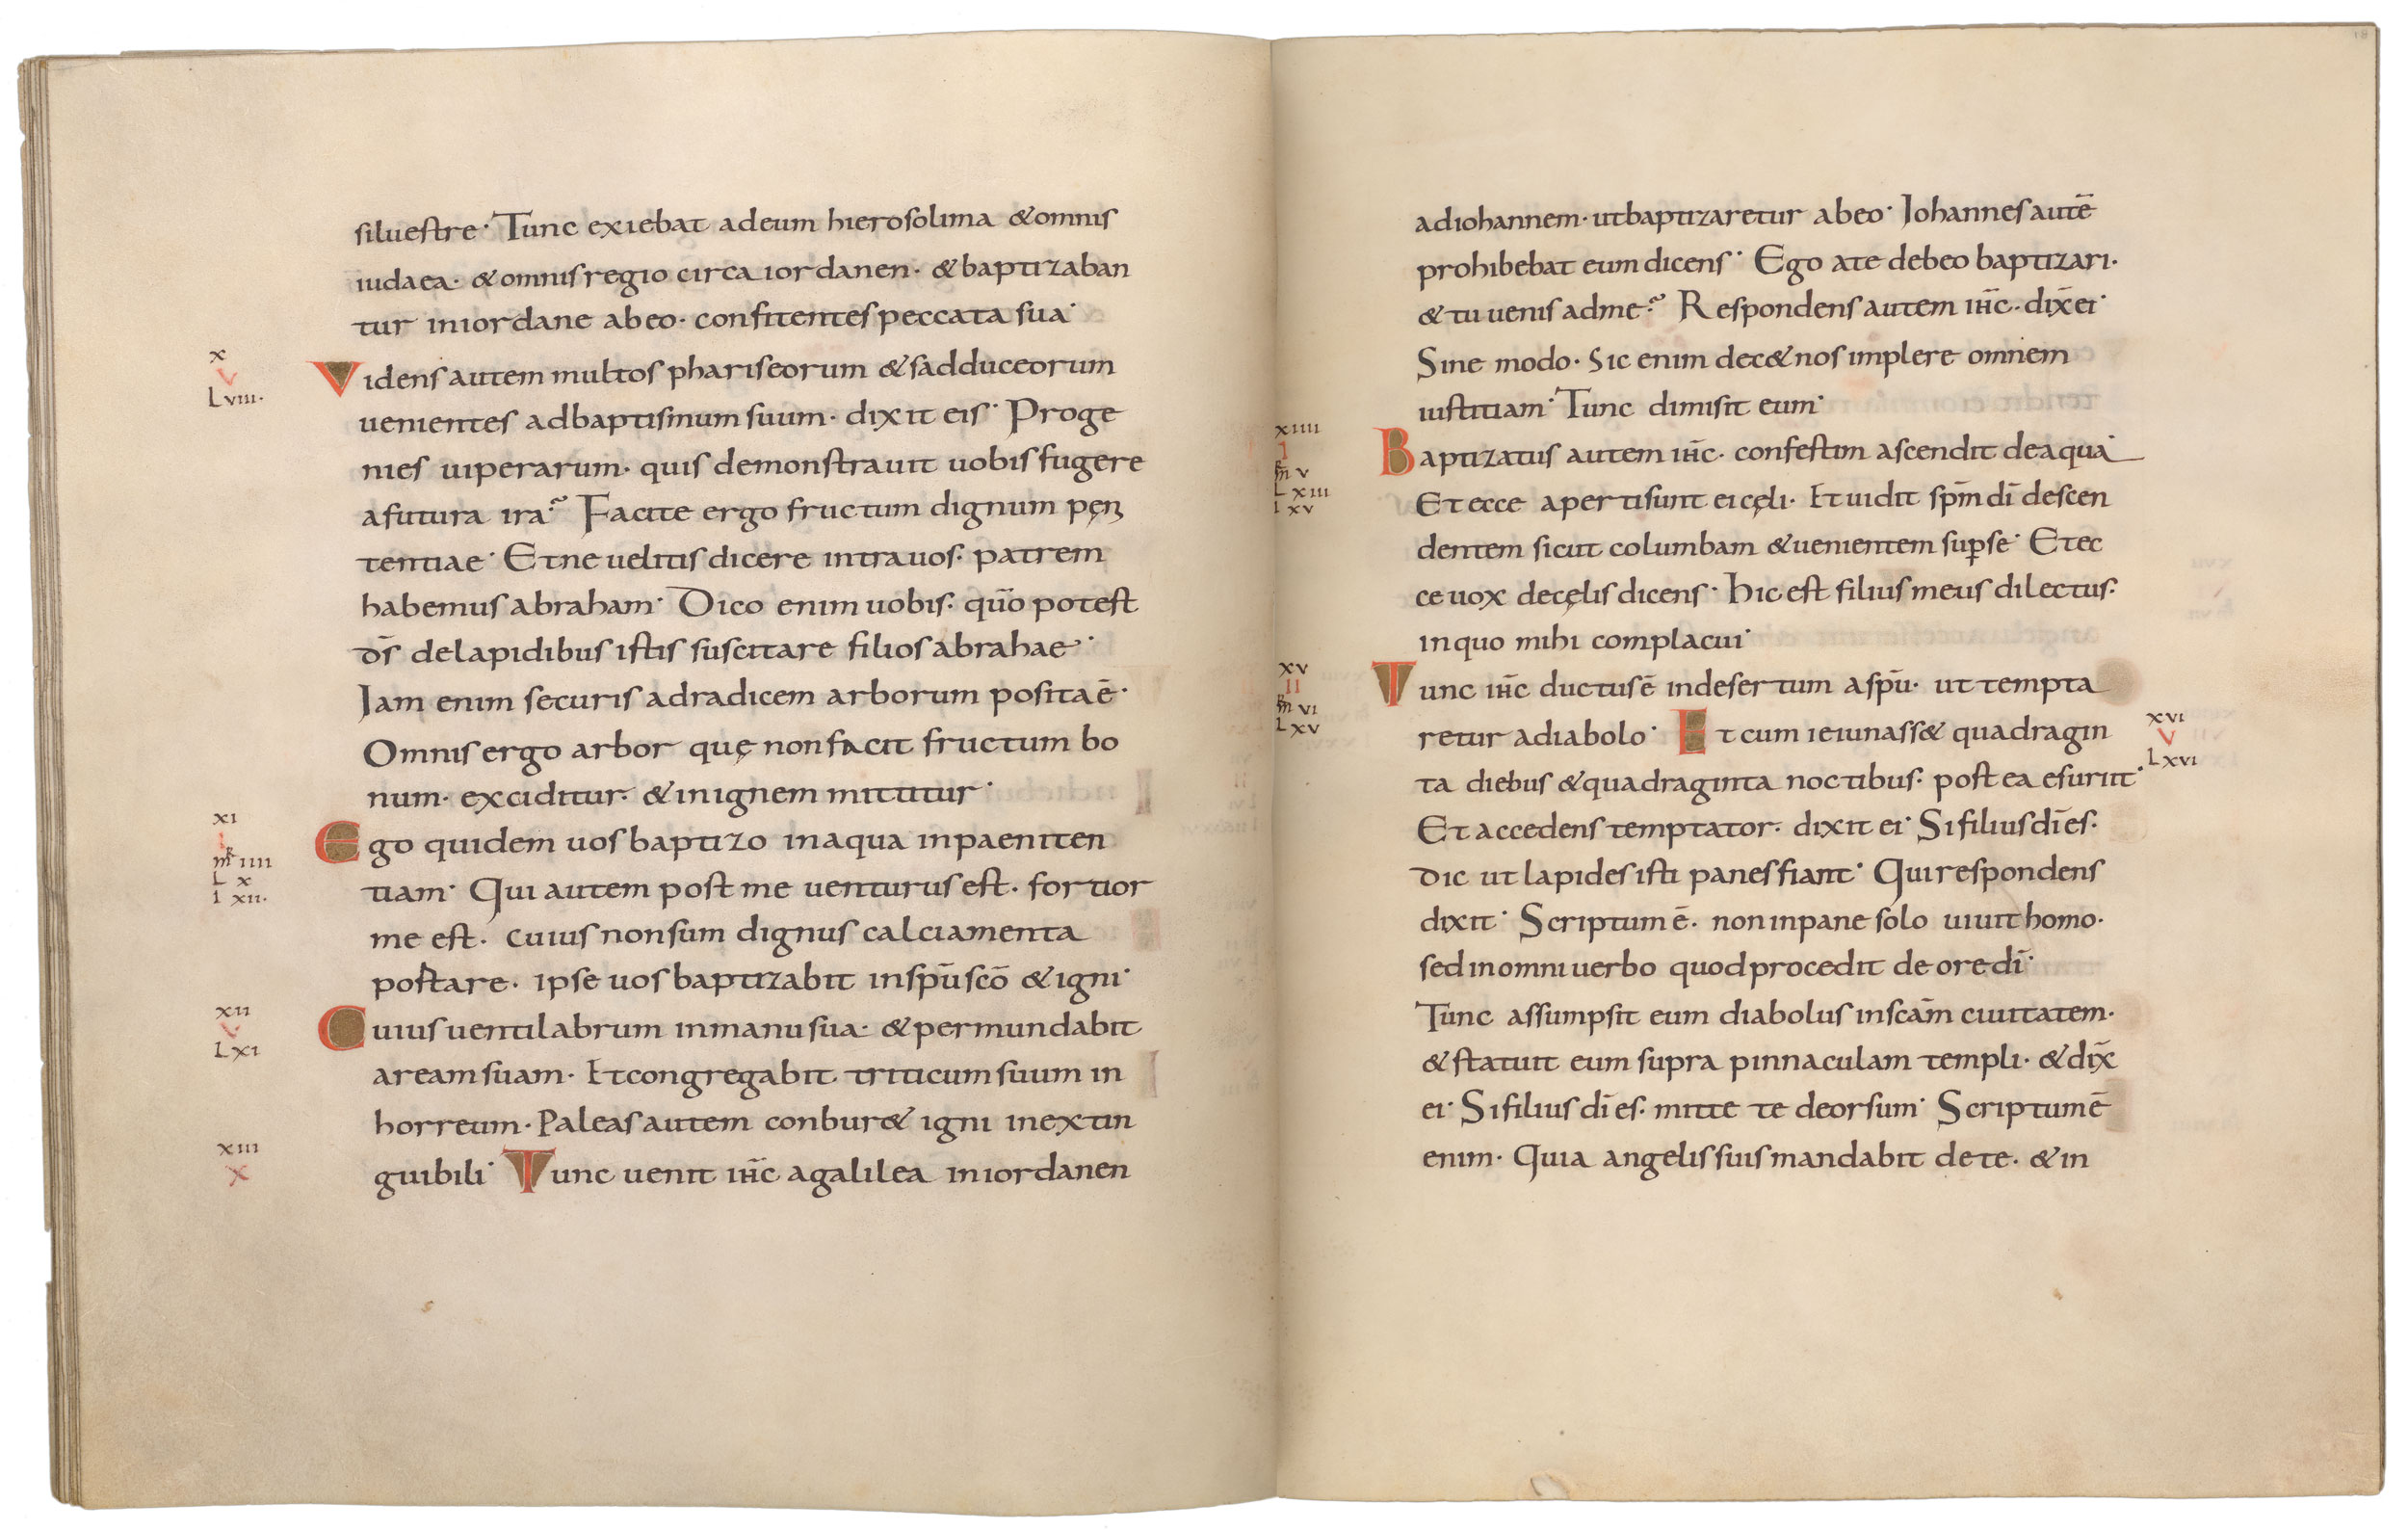 siluestre· Tunc exiebat adeum hierosolima &omnis
iudaea· &omnis regio circa iordanen· &baptizaban
tur iniordane abeo· confitentes peccata sua·
x
v
Lviii·
Videns autem multos phariseorum &sadduceorum
uenientes adbaptismum suum· dixit eis· Proge
nies uiperarum· quis demonstrauit uobis fugere
afutura ira? Facite ergo fructum dignum pęni
tentiae· Etne uelitis dicere intrauos· patrem
habemus abraham· Dico enim uobis· quo̅ potest
dS̅ delapidibus istis suscitare filios abrahae·
Jam enim securis adradicem arborum posita ē·
Omnis ergo arbor quę non facit fructum bo
num· exciditur· &inignem mittitur·
xi
i
mr iiii
L x
i xii·
Ego quidem uos baptizo inaqua inpaeniten
tiam· Qui autem post me uenturus est· fortior
me est· cuius nonsum dignus calciamenta
portare· ipse uos baptizabit inspū scō &igni·
xii
v
Lxi
Cuius uentilabrum inmanu sua· &permundabit
aream suam· Etcongregabit triticum suum in
horreum· Paleas autem conbur& igni inextin
xiii
x
guibili· Tunc uenit ih̅c agalilea iniordanen
adiohannem· utbaptizaretur abeo· Johannes autē
prohibebat eum dicens· Ego ate debeo baptizari·
&tu uenis adme? Respondens autem ih̅c· dix̅ ei·
Sine modo· Sic enim dec& nos implere omnem
iustitiam· Tunc dimisit eum·
xiiii
i
mr v
L xiii
i xv
Baptizatus autem ih̅c· confestim ascendit deaqua·
Et ecce aperti sunt ei cęli· Et uidit spm̅ dī descen
dentem sicut columbam &uenientem sup̲ se· Etec
ce uox decęlis dicens· hic est filius meus dilectus·
inquo mihi complacui·
xv
ii
mr vi
Lxv
Tunc ih̅c ductus ē indesertum aspū· ut tempta
retur adiabolo· Et cum ieiunass& quadragin
xvi
v
Lxvi
ta diebus &quadraginta noctibus· post ea esuriit·
Et accedens temptator· dixit ei· Si filius dī es·
dic ut lapides isti panes fiant· Qui respondens
dixit· Scriptum ē· non inpane solo uiuit homo·
sed inomni uerbo quod procedit de ore dī·
Tunc assumpsit eum diabolus inscām ciuitatem·
&statuit eum supra pinnaculam templi· &dix̅
ei· Si filius dī es· mitte te deorsum· Scriptum ē
enim· Quia angelis suis mandabit dete· &in